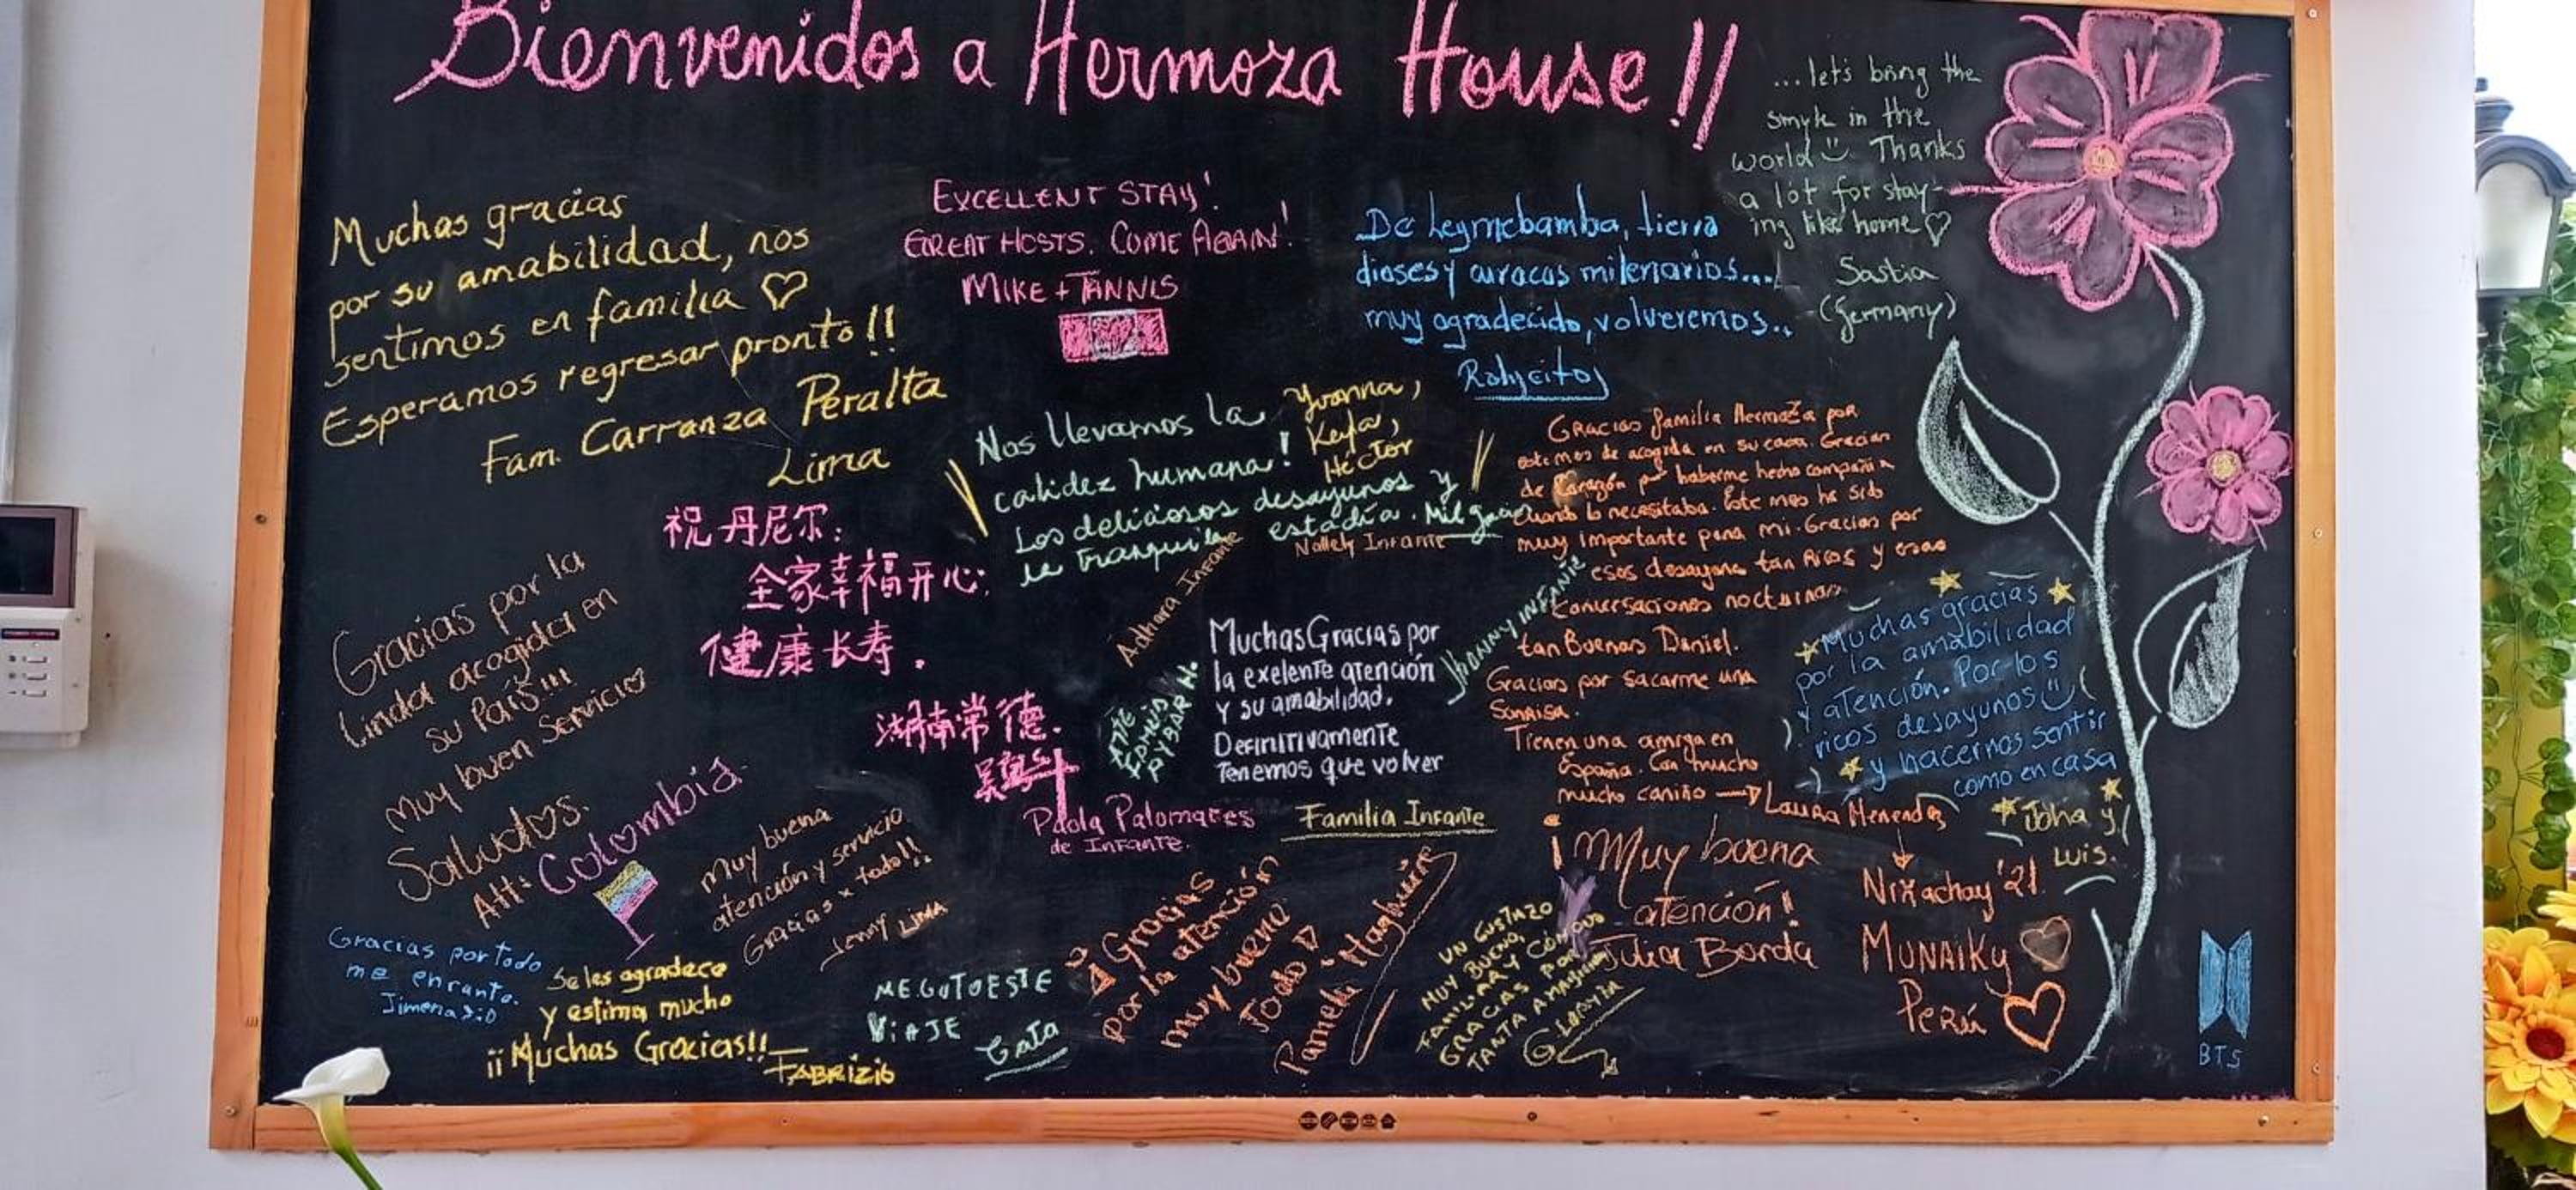 Bienvenidos a Hermoza House !!
...let's bring the
smyle in the
world Thanks
a lot for stay-
ing like home
Saskia
(Germany)
Muchas gracias
por su amabilidad, nos
sentimos en familia
Esperamos regresar pronto!!
Fam. Carranza Peralta
Lima
EXCELLENT STAY!
GREAT HOSTS. COME AGAIN!
MIKE + TANNIS
De Leymebamba, tierra
dioses y curacas milenarios...
muy agradecido, volveremos..
Nos llevamos la
calidez humana!
Los deliciosos desayunos y
la tranquila estadía. Mil gracias
Yvonna,
Keyla,
Héctor
Nallely Infante
Adhara Infante
JHONNY INFANTE
Gracias familia Hermoza por
este mes de acogida en su casa. Gracias
de Corazón por haberme hecho compañia
cuando lo necesitaba. Este mes ha sido
muy importante para mi. Gracias por
esos desayunos tan Ricos y esas
conversaciones nocturnas
tan Buenas Daniel.
Gracias por sacarme una
Sonrisa.
Tienen una amiga en
España. Con mucho
mucho cariño → Laura Menendez
祝丹尼尔:
全家幸福开心;
健康长寿.
湖南常德.
Gracias por la
linda acogida en
su País!!!
Muy buen Servicio
Saludos.
Att: Colombia.
Muchas Gracias por
la exelente atención
y su amabilidad.
Definitivamente
Tenemos que volver
Paola Palomares
de Infante.
Familia Infante
Muchas gracias
por la amabilidad
y atención. Por los
ricos desayunos
y hacernos sentir
como en casa
Joha y
Luis.
Muy buena
atención y servicio
Gracias x todo!!
Jenny LIMA
¡Muy buena
atención!
Julia Borda
'21
MUNAIKY
Perú
Gracias por todo
me encanto.
Jimena
Se les agradece
y estima mucho
¡¡Muchas Gracias!!
FABRIZIO
ME GUTO ESTE
ViAJE
Cata
Gracias
por la atención
muy bueno
todo
UN GUSTAZO
MUY BUENO,
FAMILIAR Y CÓMODO
GRACIAS POR
TANTA AMABILIDAD
BTS